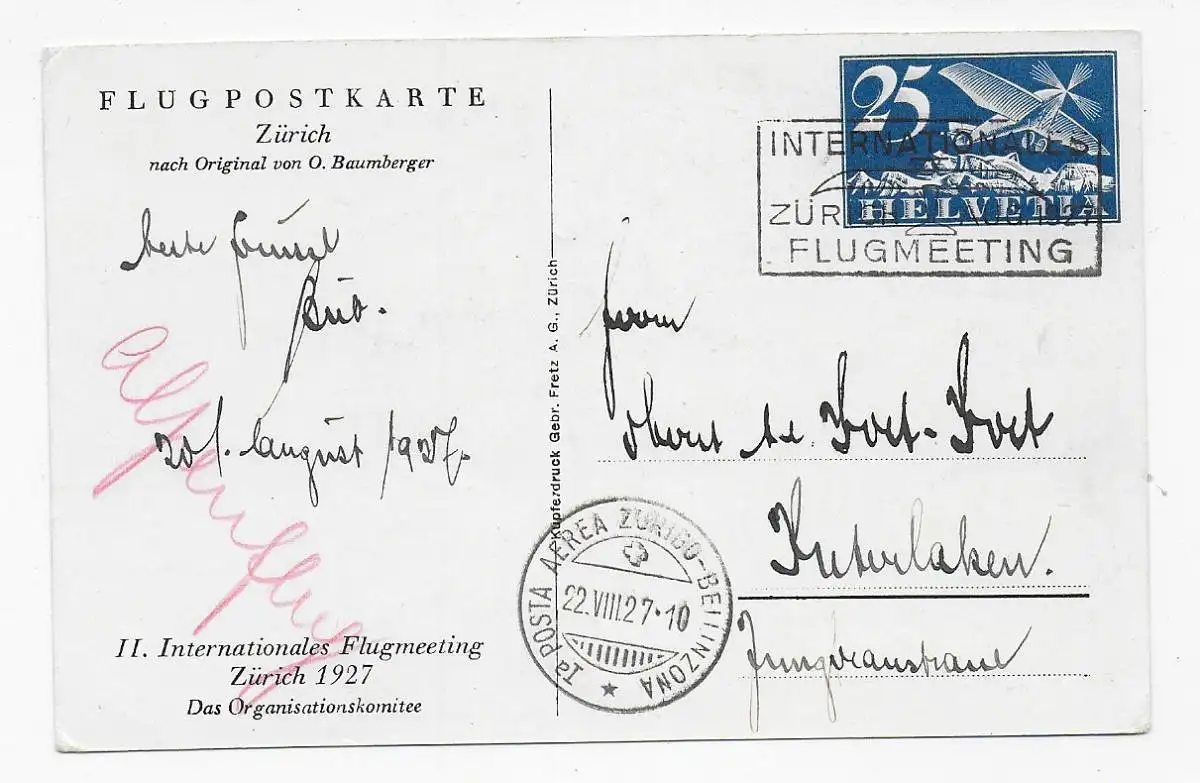 FLUGPOSTKARTE
Zürich
nach Original von O. Baumberger
beste
20/. August 1927.
Alpenflug
II. Internationales Flugmeeting
Zürich 1927
Das Organisationskomitee
Kupferdruck Gebr. Fretz A. G., Zürich
25
HELVETIA
INTERNATIONALES
ZÜRICH AUG. 1927
FLUGMEETING
Herrn
Interlaken.
Ia POSTA AEREA ZURIGO-BELLINZONA
22.VIII.27·10